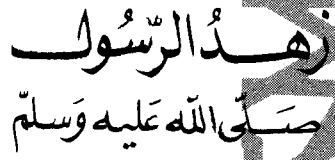 زهدُ الرّسُول
صَلّى اللّه عَليه وَسلمّ